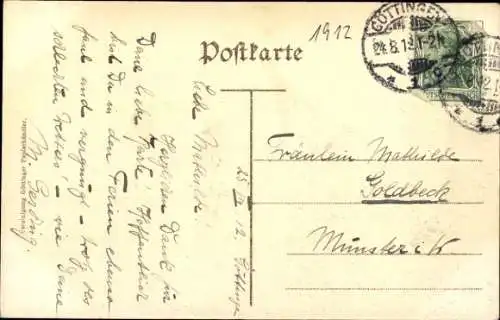 Postkarte
1912
GÖTTINGEN
24.8.12.1-2N
Fräulein Mathilde
Goldbeck
Münster i/W
12. Göttingen
Liebe Mathilde!
Herzl. Dank für
Deine liebe Karte! Hoffentlich
hast Du in den Ferien ebenso
faul und vergnügt – trotz des
schlechten Wetters! – wie Deine
M. Gerding.